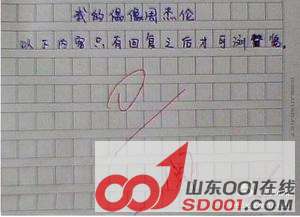 我的偶像周杰伦
以下内容只有回复之后才可浏览。
山东001在线
SD001.COM